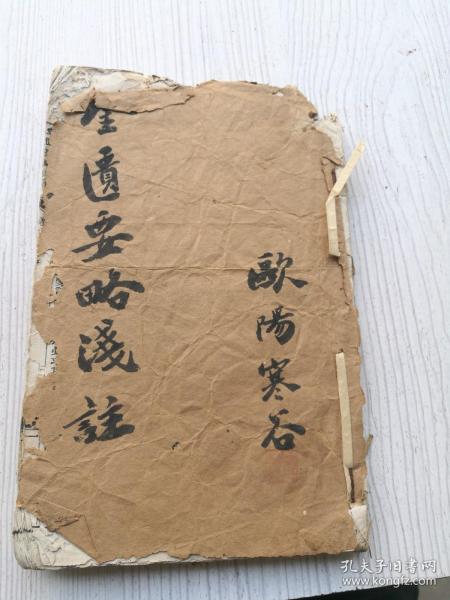 歐陽寒谷
金匱要略淺註
孔夫子旧书网
www.kongfz.com